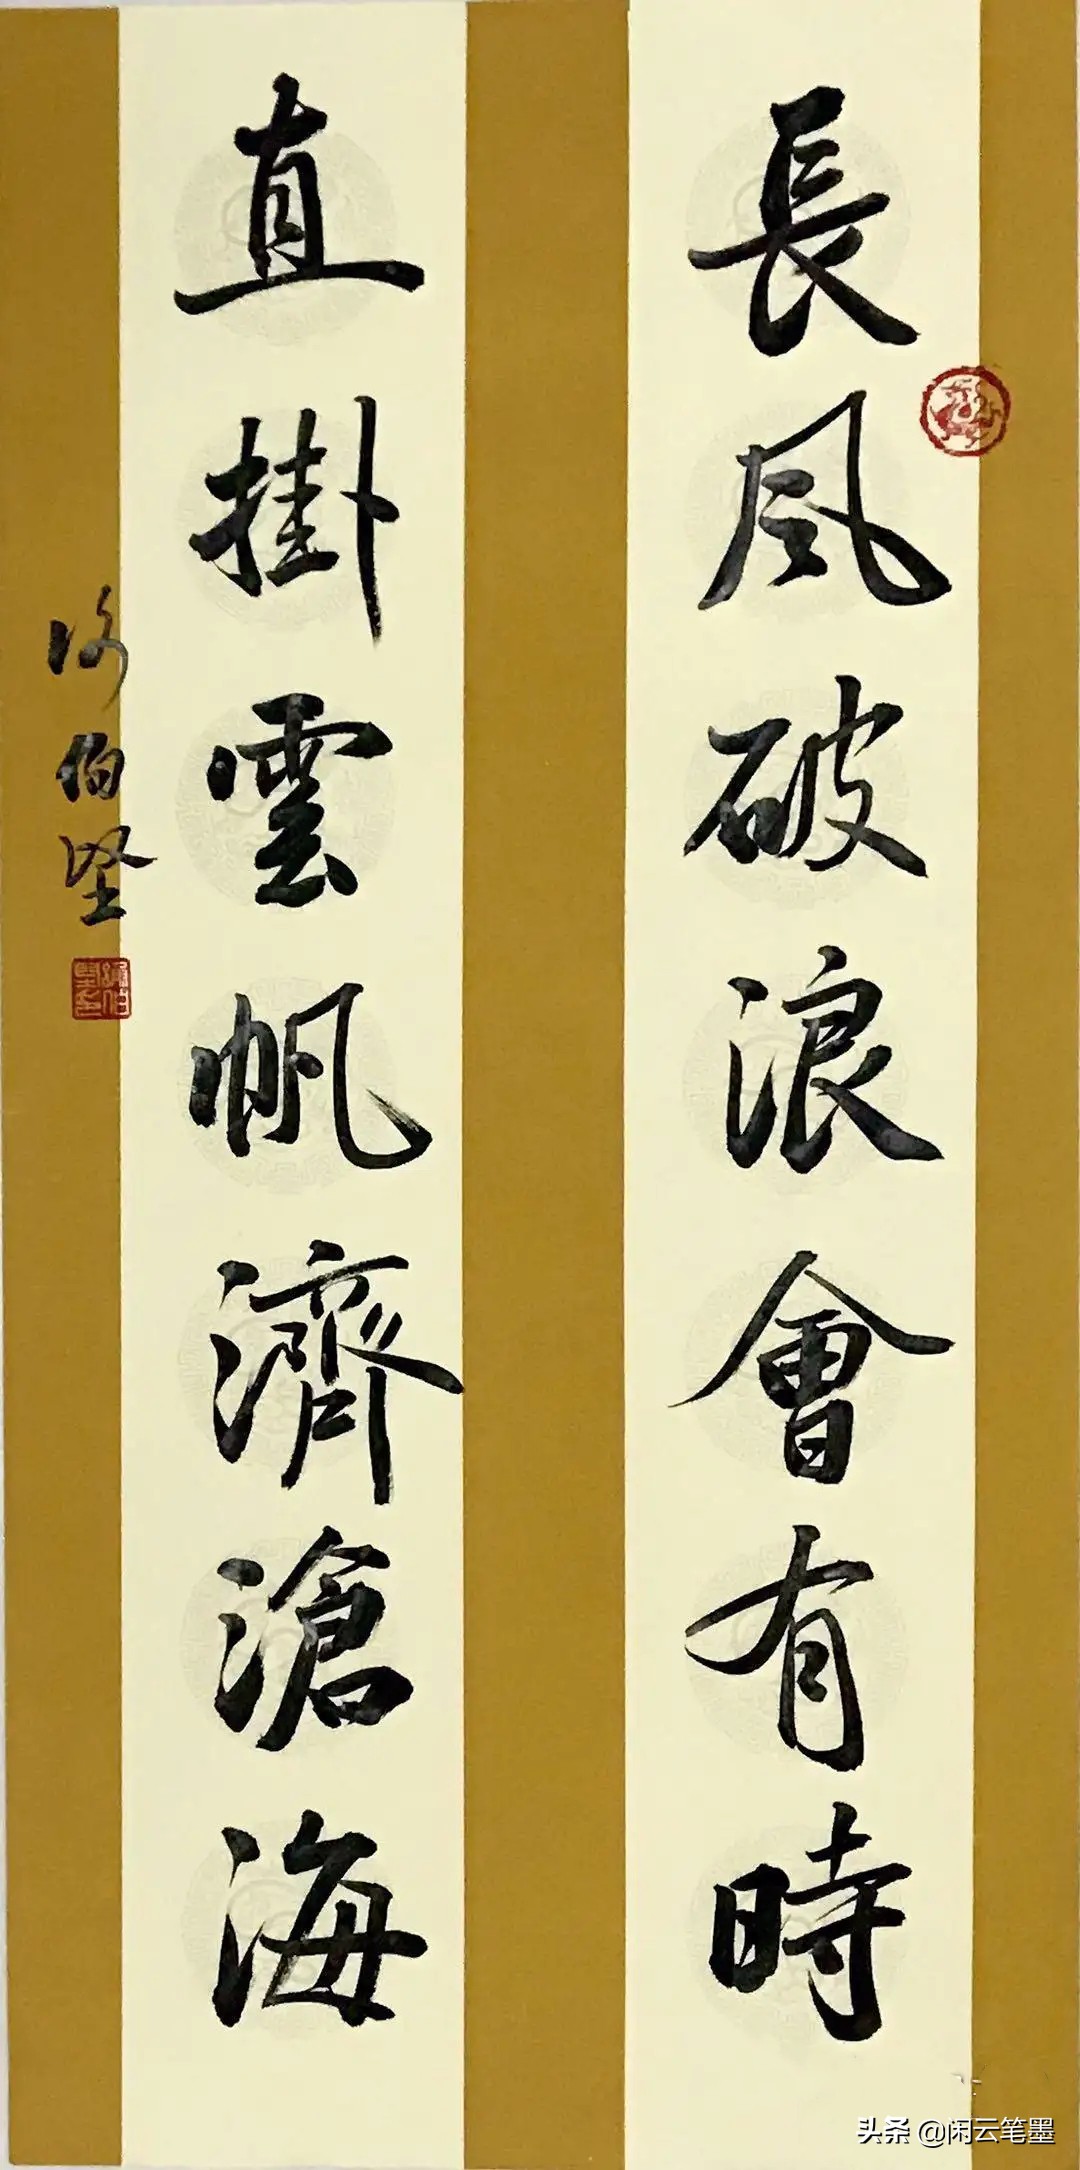 長風破浪會有時
直掛雲帆濟滄海
伯堅
头条 @闲云笔墨